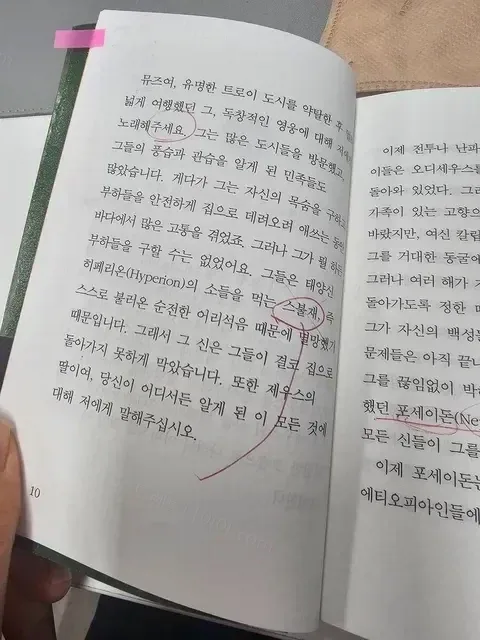 뮤즈여, 유명한 트로이 도시를 약탈한 후
넓게 여행했던 그, 독창적인 영웅에 대해
노래해주세요. 그는 많은 도시들을 방문했고,
그들의 풍습과 관습을 알게 된 민족들도
많았습니다. 게다가 그는 자신의 목숨을 구하고
부하들을 안전하게 집으로 데려오려 애쓰는 동안
바다에서 많은 고통을 겪었죠. 그러나 그가 뭘 하든
부하들을 구할 수는 없었어요. 그들은 태양신
허페리온(Hyperion)의 소들을 먹는 스불재, 즉
스스로 불러온 순전한 어리석음 때문에 멸망했기
때문입니다. 그래서 그 신은 그들이 결코 집으로
돌아가지 못하게 막았습니다. 또한 제우스의
딸이여, 당신이 어디서든 알게 된 이 모든 것에
대해 저에게 말해주십시오.
10
이제 전투나 난파
이들은 오디세우스를
돌아와 있었다. 그러
가족이 있는 고향으
바랐지만, 여신 칼립
그를 거대한 동굴에
그러나 여러 해가 지
돌아가도록 정한 때
그가 자신의 백성들
문제들은 아직 끝나
그를 끊임없이 박해
했던 포세이돈(Ne
모든 신들이 그를
이제 포세이돈은
에티오피아인들에